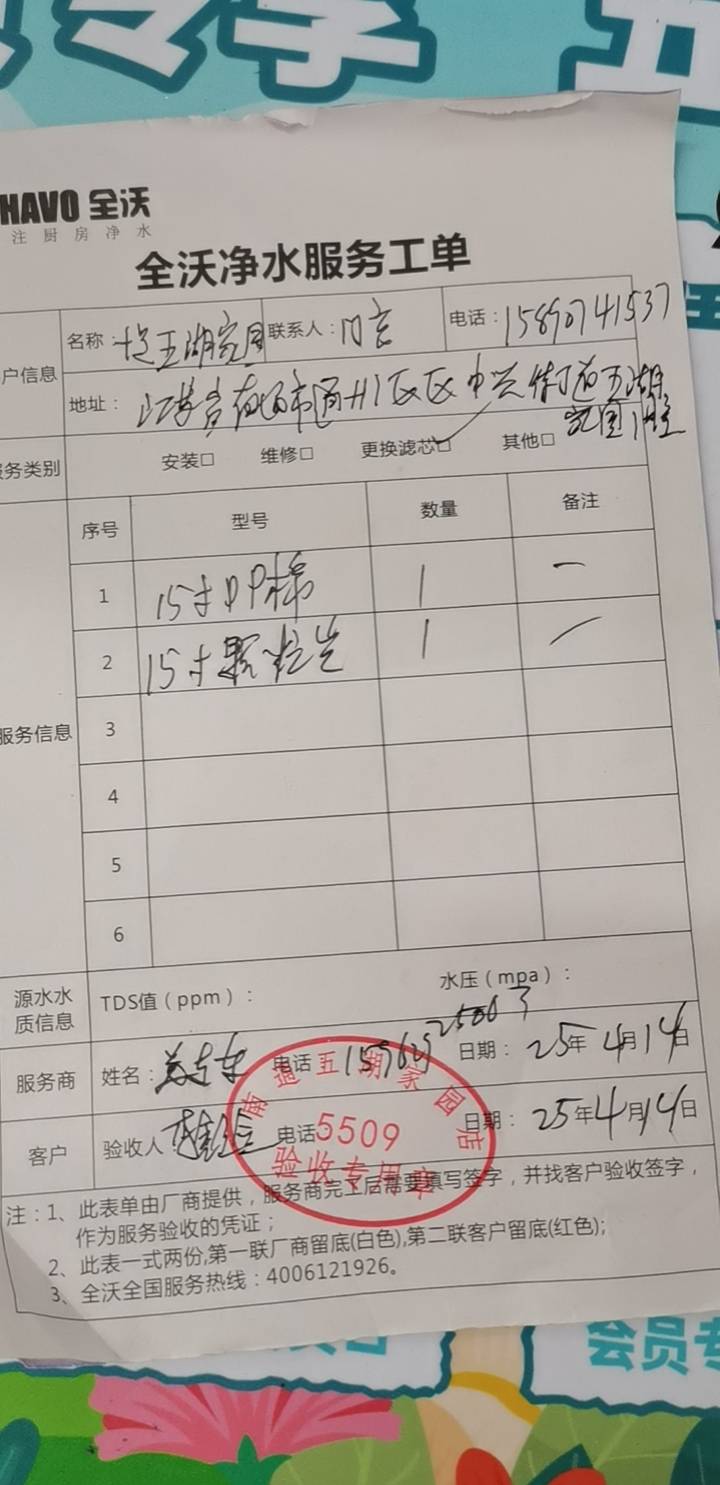 HAVO 全沃
注厨房净水
全沃净水服务工单
户信息
名称： 五湖家园 联系人： 电话：15890741537
地址：江苏省 市通州区 中兴街道五湖
家园
务类别 安装□ 维修□ 更换滤芯□ 其他□
服务信息
序号 型号 数量 备注
1 15寸PP棉 1 一
2 15寸颗粒炭 1 一
3
4
5
6
源水水质信息 TDS值（ppm）： 水压（mpa）：
服务商 姓名： 电话 日期：25年4月14日
客户 验收人 电话 日期：25年4月14日
南通五湖家园店
5509
验收专用章
注：1、此表单由厂商提供，服务商完工后需要填写签字，并找客户验收签字，
作为服务验收的凭证；
2、此表一式两份,第一联厂商留底(白色),第二联客户留底(红色);
3、全沃全国服务热线：4006121926。
会员专